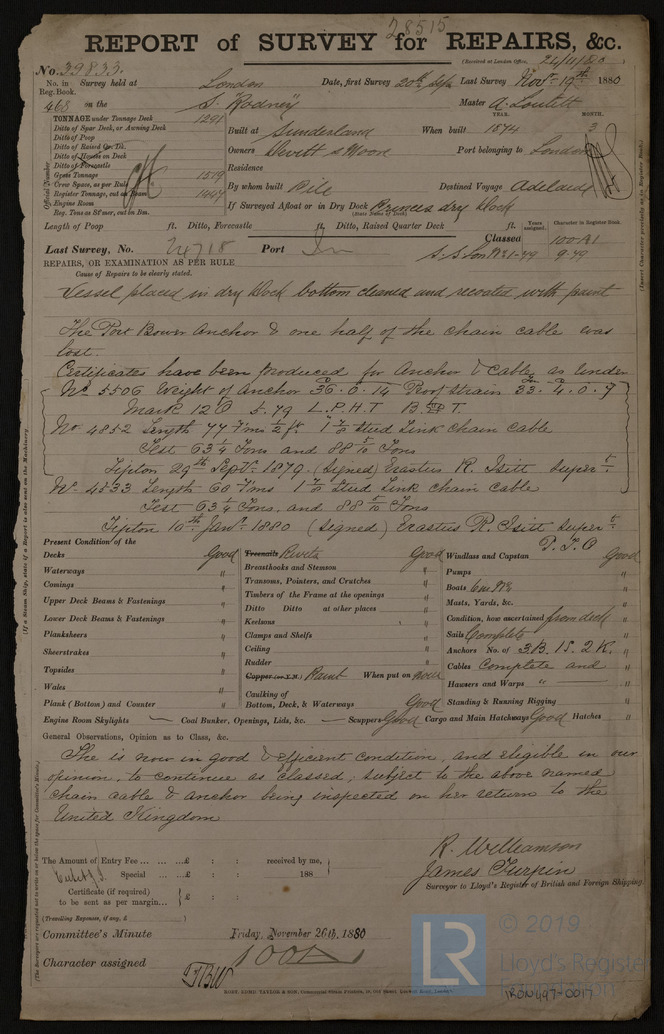 28515
REPORT of SURVEY for REPAIRS, &c.
(Received at London Office, 24/11/80
No. 39833
No. in Reg. Book. Survey held at London Date, first Survey 20th Last Survey Novr 19th 1880
468 on the S. "Rodney" Master A. Louttit
TONNAGE under Tonnage Deck 1291
Ditto of Spar Deck, or Awning Deck
Ditto of Poop
Ditto of Raised Qr. Dk.
Ditto of Houses on Deck
Ditto of Forecastle
Gross Tonnage 1519
Crew Space, as per Rule
Register Tonnage, out on Beam 1447
Engine Room
Reg. Tons as St'mer, cut on Bm.
Official Number
Built at Sunderland When built YEAR. 1874 MONTH. 3
Owners Devitt & Moore Port belonging to London
Residence
By whom built Pile Destined Voyage Adelaide
If Surveyed Afloat or in Dry Dock Princes dry dock
(State Name of Dock)
Length of Poop ft. Ditto, Forecastle ft. Ditto, Raised Quarter Deck ft.
Years assigned. Character in Register Book.
Classed 100A1
Last Survey, No. 24718 Port Lon S.S. Lon No1-79 9.79
REPAIRS, OR EXAMINATION AS PER RULE
Cause of Repairs to be clearly stated.
Vessel placed in dry dock bottom cleaned and recoated with paint
The Port Bower Anchor & one half of the chain cable was
lost.
Certificates have been produced for Anchor & Cable as under
No 5506 Weight of Anchor 36.0.14 Proof Strain 33.4.0.9
Mark 120 5.79 L.P.H.T B. T.
No 4852 Length 77 Fms 2 ft 1 7/8 Stud Link chain cable
Test 63 1/4 Tons and 88 5/10 Tons
Tipton 29th Septr 1879. (signed) Erastus R. Isitt Supert
No 4533 Length 60 Fms 1 7/8 Stud Link chain cable
Test 63 1/4 Tons, and 88 5/10 Tons
Tipton 10th Janr 1880 (signed) Erastus R. Isitt Supert
P.T.O
Present Condition of the
Decks Good
Waterways "
Comings "
Upper Deck Beams & Fastenings "
Lower Deck Beams & Fastenings "
Planksheers "
Sheerstrakes "
Topsides "
Wales "
Plank (Bottom) and Counter "
Treenails Rivets Good
Breasthooks and Stemson "
Transoms, Pointers, and Crutches "
Timbers of the Frame at the openings "
Ditto Ditto at other places "
Keelsons "
Clamps and Shelfs "
Ceiling "
Rudder "
Copper (or Y.M.) Paint When put on now
Caulking of
Bottom, Deck, & Waterways Good
Windlass and Capstan Good
Pumps "
Boats "
Masts, Yards, &c. "
Condition, how ascertained from deck
Sails Complete "
Anchors No. of 3B. 1S. 2K. "
Cables Complete and "
Hawsers and Warps " "
Standing & Running Rigging "
Engine Room Skylights — Coal Bunker, Openings, Lids, &c. — Scuppers Good Cargo and Main Hatchways Good Hatches "
General Observations, Opinion as to Class, &c.
She is now in good & efficient condition, and eligible in our
opinion, to continue as classed, subject to the above named
chain cable & anchor being inspected on her return to the
United Kingdom
R. Williamson
James Turpin
Surveyor to Lloyd's Register of British and Foreign Shipping.
The Amount of Entry Fee ... ... ...£ : : received by me,
Special ... ...£ : : 188
Certificate (if required)
to be sent as per margin... £ : :
(Travelling Expenses, if any, £ )
Committee's Minute Friday, November 26th, 1880
Character assigned 100A
LR
© 2019
Lloyd's Register
Foundation
IRON697-0017